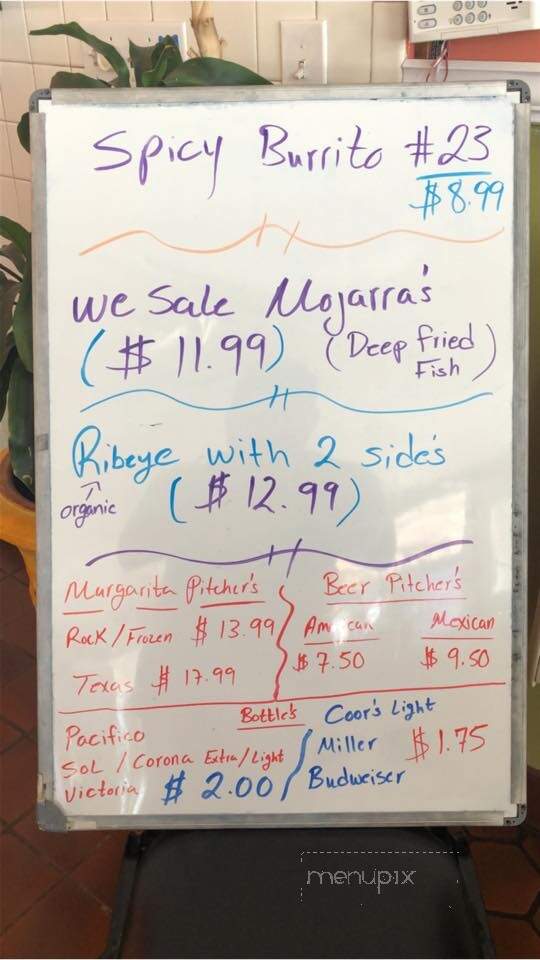 Spicy Burrito #23
$8.99
We Sale Mojarra's
($11.99) (Deep fried
Fish)
Ribeye with 2 side's
organic ($12.99)
Margarita Pitcher's
Rock/Frozen $13.99
Texas $17.99
Beer Pitcher's
Mexican
$7.50 $9.50
Bottle's
Pacifico
Sol / Corona Extra/Light
Victoria $2.00
Coor's Light
Miller $1.75
Budweiser
menupix